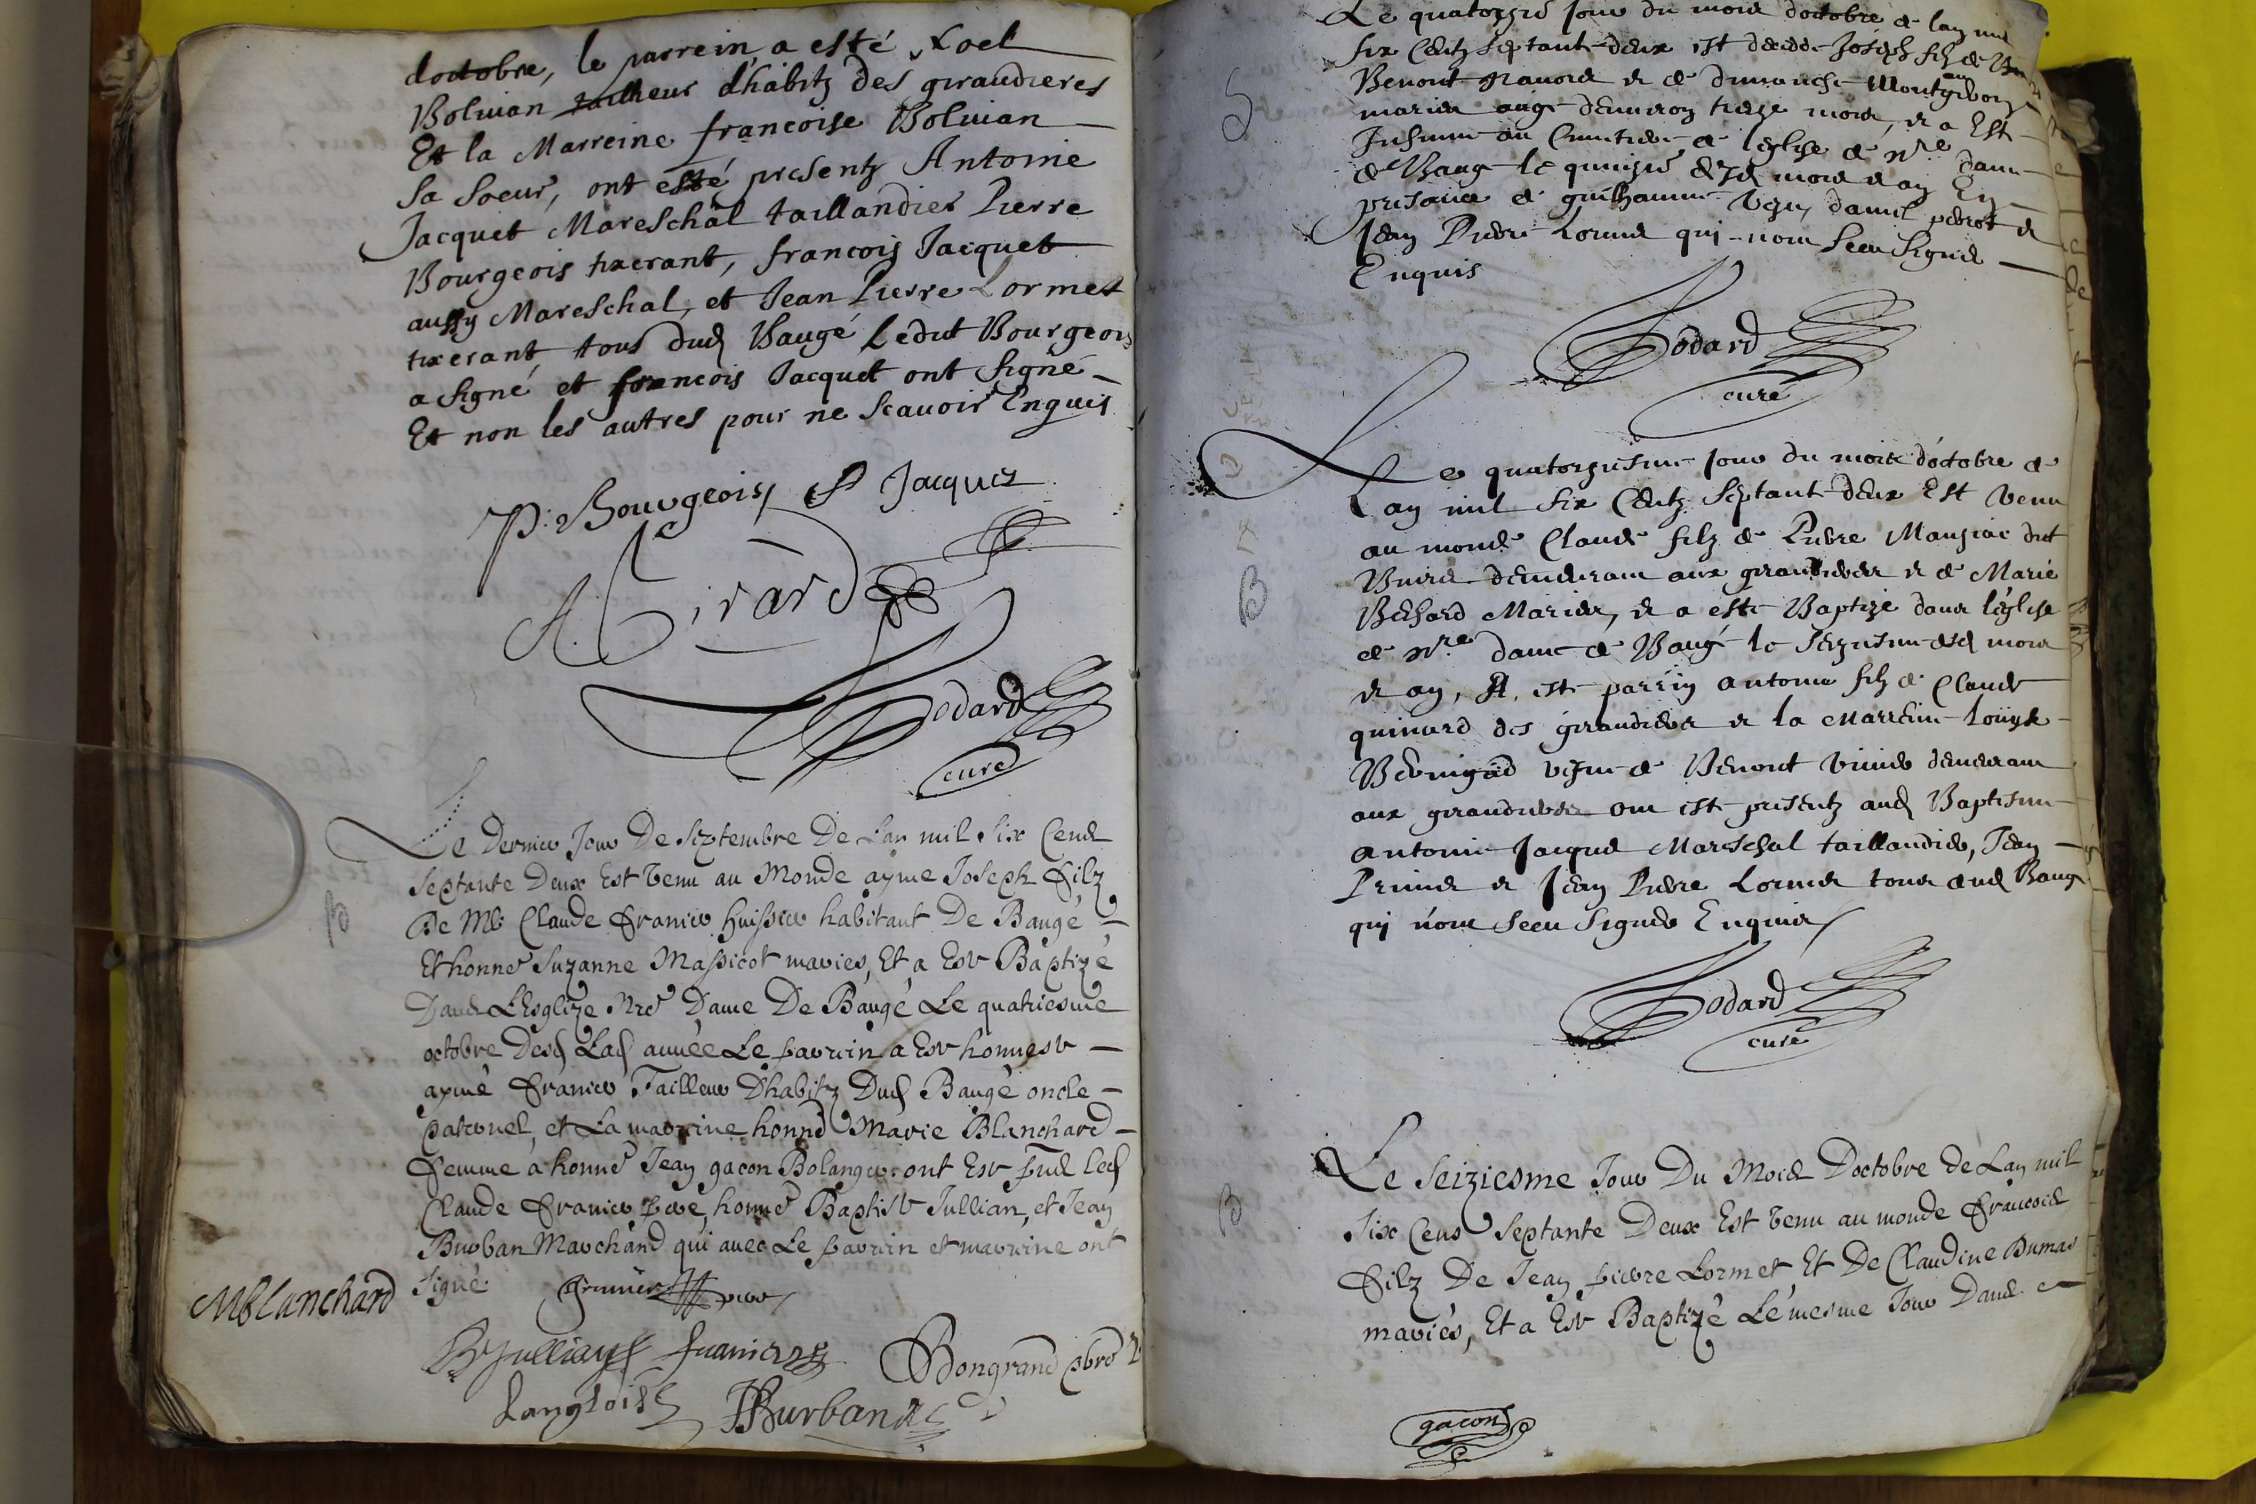 doctobre, le parrein a esté Noel
Boluian tailheur dhabitz des giraudieres
Et la Marreine francoise Boluian
Sa Soeur, ont esté presentz Antoine
Jacquet Mareschal taillandier Pierre
Bourgeois tixerant, francois Jacquet
aussy Mareschal, et Jean Pierre Lormet
tixerant tous dud Baugé Ledit Bourgeois
a signé et francois Jacquet ont signé
Et non les autres pour ne scauoir Enquis
P: Bourgeois F Jacquet
A. Girard
Hodard
curé
Le Dernier Jour De Septembre De Lan mil Six Cens
Septante Deux Est Venu au Monde ayme Joseph Filz
De Me Claude Franier huissier habitant De Baugé
Et honne Suzanne Massicot mariés, Et a Est Baptizé
Dans LEsglize Nre Dame De Baugé Le quatriesme
octobre Desd Lad année Le parrin a Est honnest
aymé Franier Tailleur Dhabitz Dud Baugé oncle
paternel, et La marrine honne Marie Blanchard
Femme a honne Jean gacon Bolanger ont Est led
Claude Franier pere, honne Baptist Jullian, et Jean
Burban Marchand qui auec Le parrin et marrine ont
Signé
MBlanchard
BJullian franier Bongrand pbre
Langlois JBurban
Le quatorzie jour du mois doctobre de lan mil
six Centz septante deux est decede Joseph filz de
Benoit et de dimanche
maries aagé denuiron treze mois, et a Est
Inhume au Cimetiere de leglise de nre dame
de Baugé le quinzie desd mois et an En
presance de guilhaume daniel perrot et
Jean Pierre Lormet qui nont sceu signer
Enquis
S
Hodard
curé
Le quatorziesme jour du mois d'octobre de
Lan mil six Centz septante deux Est Venu
au monde Claude filz de Pierre dit
demeurant aux giraudieres et de Marie
Maries, et a este Baptizé dans léglise
de nre dame de Baugé le seiziesme desd mois
et an, A este parrin antoine filz de Claude
quinard des giraudieres et la Marreine Louyse
de Benoit demeurant
aux giraudieres ont este presentz aud Baptisme
antoine Jacquet Mareschal taillandier, Jean
et Jean Pierre Lormet tous dud Baugé
qui nont sceu signer Enquis
B
Hodard
curé
Le Seiziesme Jour Du Mois Doctobre de Lan mil
Six Cens Septante Deux Est Venu au monde Francois
Filz De Jean pierre Lormet Et De Claudine Dumas
mariés, Et a Est Baptizé Le mesme Jour Dans
B
gacon